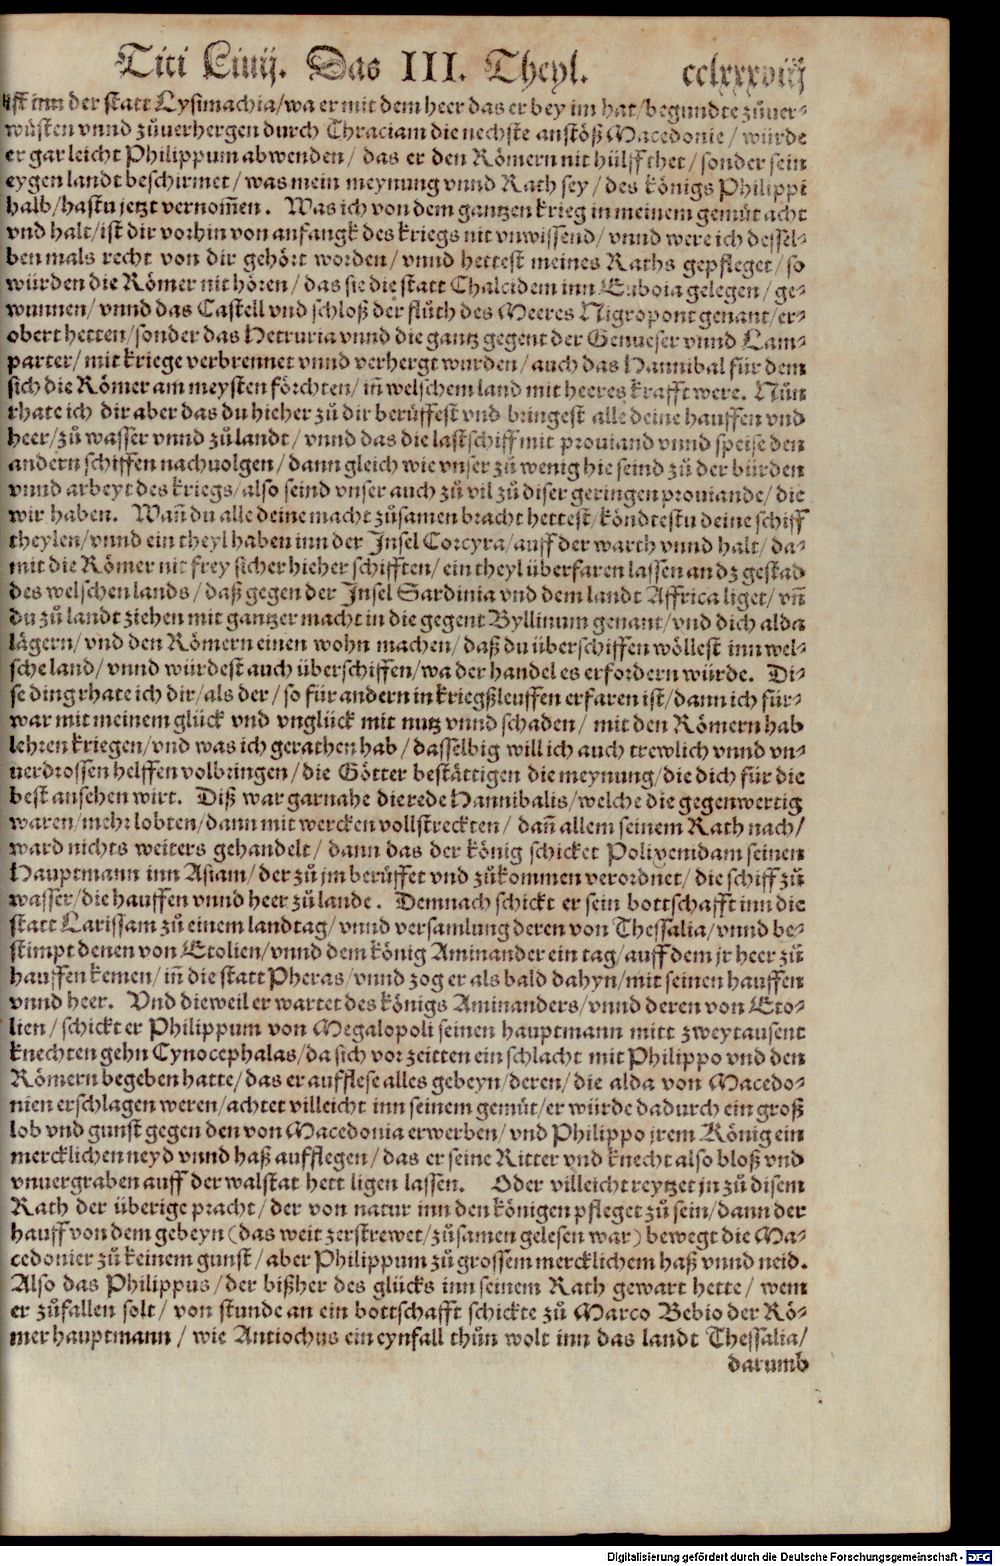 Titi Liuij. Das III. Theyl. cclxxxviij
ist inn der statt Lysimachia/wa er mit dem heer das er bey im hat/begundte zůuer⸗
wůsten vnnd zůuerhergen durch Thraciam die nechste anstöß Macedonie/ würde
er gar leicht Philippum abwenden/ das er den Römern nit hülff thet/ sonder sein
eygen landt beschirmet/ was mein meynung vnnd Rath sey/ des königs Philippi
halb/hastu jetzt vernom̃en. Was ich von dem gantzen krieg in meinem gemůt acht
vnd halt/ist dir vorhin von anfangk des kriegs nit vnwissend/ vnnd were ich dessel⸗
ben mals recht von dir gehört worden/ vnnd hettest meines Raths gepfleget/ so
würden die Römer nit hören/ das sie die statt Chalcidem inn Euboia gelegen/ ge⸗
wunnen/ vnnd das Castell vnd schloß der flůth des Meeres Nigropont genant/er⸗
obert hetten/sonder das Hetruria vnnd die gantz gegent der Genueser vnnd Lam⸗
parter/ mit kriege verbrennet vnnd verhergt wurden/ auch das Hannibal für dem
sich die Römer am meysten förchten/ in̄ welschem land mit heeres krafft were. Nůn
rhate ich dir aber das du hieher zů dir berůffest vnd bringest alle deine hauffen vnd
heer/zů wasser vnnd zů landt/ vnnd das die lastschiff mit prouiand vnnd speise den
andern schiffen nachuolgen/ dann gleich wie vnser zů wenig hie seind zů der bürden
vnnd arbeyt des kriegs/also seind vnser auch zů vil zů diser geringen prouiande/ die
wir haben. Wan̄ du alle deine macht zůsamen bracht hettest/ köndtestu deine schiff
theylen/vnnd ein theyl haben inn der Insel Corcyra/auff der warth vnnd halt/ da⸗
mit die Römer nit frey sicher hieher schifften/ ein theyl überfaren lassen an dz gestad
des welschen lands/ daß gegen der Insel Sardinia vnd dem landt Affrica liget/ vn̄
du zů landt ziehen mit gantzer macht in die gegent Byllinum genant/vnd dich alda
lägern/ vnd den Römern einen wohn machen/ daß du überschiffen wöllest inn wel⸗
sche land/ vnnd würdest auch überschiffen/wa der handel es erfordern würde. Di⸗
se ding rhate ich dir/als der/ so für andern in kriegßleuffen erfaren ist/dann ich für⸗
war mit meinem glück vnd vnglück mit nutz vnnd schaden/ mit den Römern hab
lehren kriegen/vnd was ich gerathen hab/ dasselbig will ich auch trewlich vnnd vn⸗
uerdrossen helffen volbringen/die Götter bestättigen die meynung/die dich für die
best ansehen wirt. Diß war garnahe die rede Hannibalis/welche die gegenwertig
waren/mehr lobten/dann mit wercken vollstreckten/ dan̄ allem seinem Rath nach/
ward nichts weiters gehandelt/ dann das der könig schicket Polixenidam seinen
Hauptmann inn Asiam/ der zů jm berůffet vnd zůkommen verordnet/ die schiff zů
wasser/die hauffen vnnd heer zů lande. Demnach schickt er sein bottschafft inn die
statt Larissam zů einem landtag/ vnnd versamlung deren von Thessalia/vnnd be⸗
stimpt denen von Etolien/vnnd dem könig Aminander ein tag/auff dem jr heer zů
hauffen kemen/ in̄ die statt Pheras/vnnd zog er als bald dahyn/mit seinen hauffen
vnnd heer. Vnd dieweil er wartet des königs Aminanders/vnnd deren von Eto⸗
lien/ schickt er Philippum von Megalopoli seinen hauptmann mitt zweytausent
knechten gehn Cynocephalas/da sich vor zeitten ein schlacht mit Philippo vnd den
Römern begeben hatte/das er aufflese alles gebeyn/deren/ die alda von Macedo⸗
nien erschlagen weren/achtet villeicht inn seinem gemůt/er würde dadurch ein groß
lob vnd gunst gegen den von Macedonia erwerben/ vnd Philippo jrem König ein
mercklichen neyd vnnd haß aufflegen/ das er seine Ritter vnd knecht also bloß vnd
vnuergraben auff der walstat hett ligen lassen. Oder villeicht reytzet jn zů disem
Rath der überige pracht/ der von natur inn den königen pfleget zů sein/dann der
hauff von dem gebeyn (das weit zerstrewet/zůsamen gelesen war) bewegt die Ma⸗
cedonier zů keinem gunst/ aber Philippum zů grossem mercklichem haß vnnd neid.
Also das Philippus/der bißher des glücks inn seinem Rath gewart hette/ wem
er zůfallen solt/ von stunde an ein bottschafft schickte zů Marco Bebio der Rö⸗
mer hauptmann/ wie Antiochus ein eynfall thůn wolt inn das landt Thessalia/
darumb
Digitalisierung gefördert durch die Deutsche Forschungsgemeinschaft - DFG